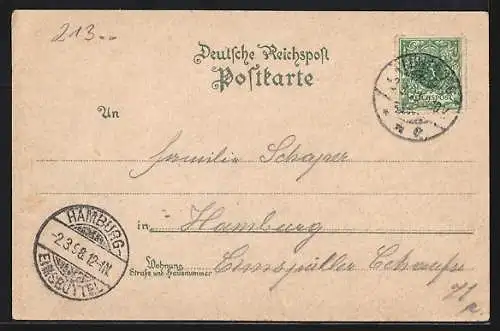 213..
Deutsche Reichspost
Postkarte
An
Familie Schaper
in Hamburg
Wohnung
Straße und Hausnummer
Eimsbüttler Chaussee
71
HAMBURG-
-2.3.98.12-1N.
EIMSBÜTTEL
REICHSPOST